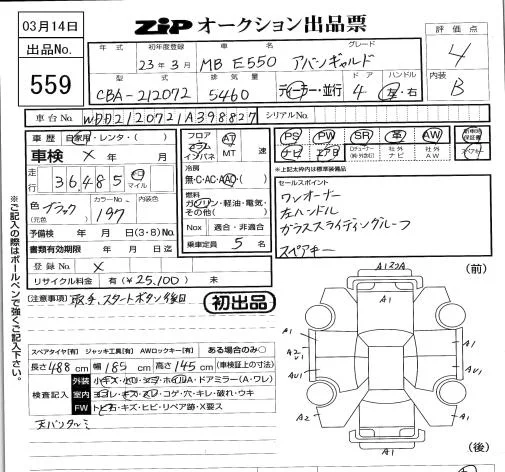 03月14日
出品No.
559
ZIP オークション出品票
評価点
4
内装
B
年式 初年度登録 車名 グレード
23年3月 MB E550 アバンギャルド
型式 排気量 ドア ハンドル
CBA-212072 5460 ディーラー・並行 4 左・右
車台No. WDD2120721A398827 シリアルNo.
車歴 自家用・レンタ・( )
車検 × 年 月
走行 36,485 キロ マイル
色 (元色) ブラック カラーNo. 197 内装色
予備検 年 月 日(3・8)No.
書類有効期限 年 月 日迄
登録No. ×
リサイクル料金 有(¥25,100) 未
フロア フラム インパネ AT MT 速
冷房
無・C・AC・AAC・( )
燃料
ガソリン・軽油・電気・その他( )
Nox 適合・非適合
乗車定員 5 名
PS PW SR 革 AW 新車時保証書
ナビ エアB 社外ナビ 社外AW
*上記太枠内は標準装備品
セールスポイント
ワンオーナー
左ハンドル
ガラススライディングルーフ
スペアキー
(注意事項)
初出品
スペアタイヤ[有] ジャッキ工具[有] AWロックキー[有] ある場合のみ○
長さ488cm 幅185cm 高さ145cm (車検証上の寸法)
検査記入
外装 小キズ・小凹・コスラ・ホイルA・ドアミラー(A・ワレ)
室内 ヨゴレ・キズ・スレ・コゲ・穴・キレ・破れ・ウキ
FW トビ石・キズ・ヒビ・リペア跡・X要ス
天バンタルミ
※ご記入の際はボールペンで強くご記入下さい。
(前)
A1
A1
A1
A2
U1
A1
AU1
AU1
A1
(後)